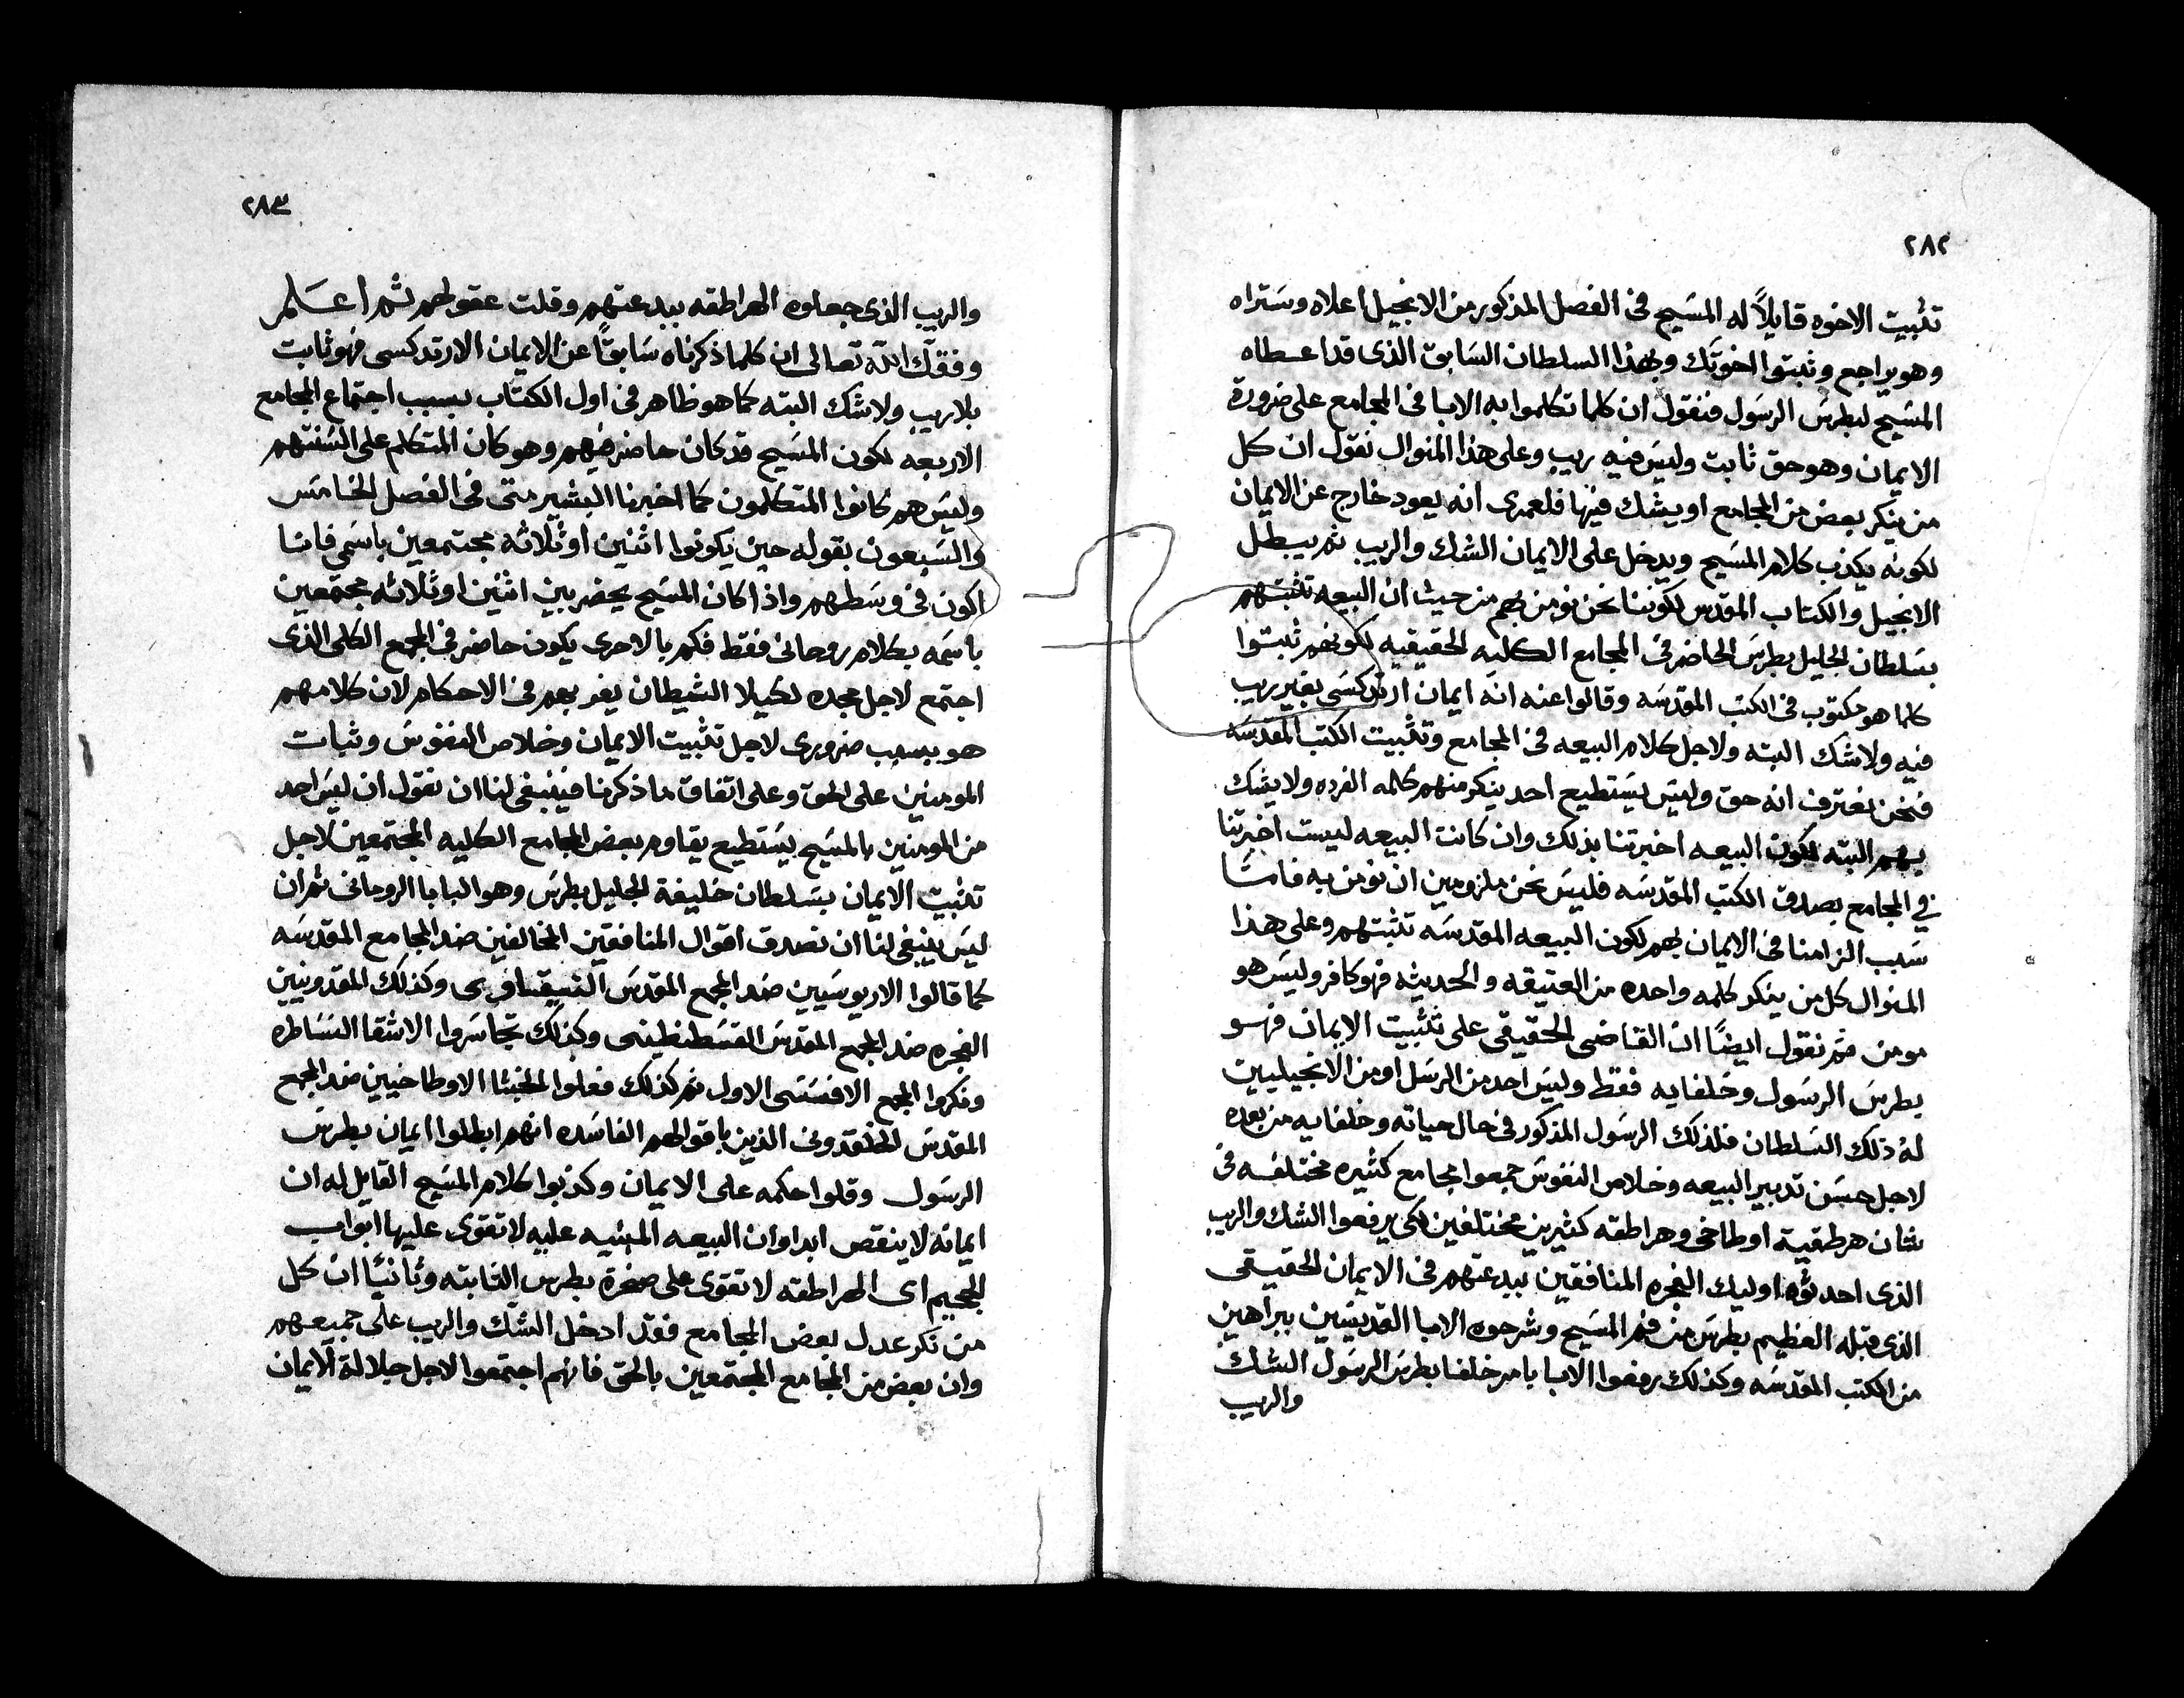 ٢٨٢
تثبيت الاخوه قايلاً له المسيح في الفصل المذكور من الانجيل اعلاه وستراه
وهو يراجع وثبتوا اخوتك وبهذا السلطان السابق الذى قد اعطاه
المسيح لبطرس الرسول فنقول ان كلما تكلموا به الابا في المجامع على ضرورة
الايمان وهو حق ثابت وليس فيه ريب وعلى هذا المنوال نقول ان كل
من ينكر بعض من المجامع او يشك فيها فلعمرى انه يعود خارج عن الايمان
لكونه يكذب كلام المسيح ويدخل على الايمان الشك والريب ثم يبطل
الانجيل والكتاب المقدس لكوننا نحن نومن بهم من حيث ان البيعه تثبتهم
بسلطان الجليل بطرس الحاضر في المجامع الكليه الحقيقيه لكونهم ثبتوا
كلما هو مكتوب في الكتب المقدسه وقالوا عنه انه ايمان ارتدكسى بغير ريب
فيه ولا شك البته ولاجل كلام البيعه في المجامع وتثبيت الكتب المقدسه
فنحن نعترف انه حق وليس يستطيع احد ينكر منهم كلمه الفرده ولا يشك
بهم البته لكون البيعه اخبرتنا بذلك وان كانت البيعه ليست اخبرتنا
في المجامع بصدق الكتب المقدسه فليس نحن ملزومين ان نومن به فامسَّا
سبب الزامنا في الايمان بهم لكون البيعه المقدسه تثبتهم وعلى هذا
المنوال كل من ينكر كلمه واحده من العتيقه والحديثه فهو كافر وليس هو
مومن ثم نقول ايضًا ان القاضى الحقيقى على تثبيت الايمان فهو
بطرس الرسول وخلفايه فقط وليس احد من الرسل او من الانجيليين
له ذلك السلطان فلذلك الرسول المذكور في حال حياته وخلفايه من بعده
لاجل حسن تدبير البيعه وخلاص النفوس جمعوا مجامع كثيره مختلفه في
شان هرطقية اوطاخى وهراطقه كثيرين مختلفين لكى يرفعوا الشك والريب
الذى احدثوه اوليك الفجره المنافقين ببدعتهم في الايمان الحقيقى
الذى قبله العظيم بطرس من فم المسيح وشرحوه الابا القديسين ببراهين
من الكتب المقدسه وكذلك رفعوا الابا بامر خلفا بطرس الرسول الشك
والريب
٢٨٣
والريب الذى جعلوه الهراطقه ببدعتهم وقلت عقولهم ثم اعلم
وفقك الله تعالى ان كلما ذكرناه سابقًا عن الايمان الارتدكسى فهو ثابت
بلا ريب ولا شك البته كما هو ظاهر في اول الكتاب بسبب اجتماع المجامع
الاربعه لكون المسيح قد كان حاضر فيهم وهو كان المتكلم على السنتهم
وليس هم كانوا المتكلمون كما اخبرنا البشير متى في الفصل الخامس
والسبعون بقوله حين يكونوا اثنين او ثلاثه مجتمعين باسمى فانا
اكون في وسطهم واذا كان المسيح يحضر بين اثنين او ثلاثه مجتمعين
باسمه بكلام روحانى فقط فكم بالاحرى يكون حاضر في المجمع الكلى الذى
اجتمع لاجل مجده لكيلا الشيطان يغر بهم في الاحكام لان كلامهم
هو بسبب ضرورى لاجل تثبيت الايمان وخلاص النفوس وثبات
المومنين على الحق وعلى اتفاق ما ذكرنا فينبغى لنا ان نقول ان ليس احد
من المومنين بالمسيح يستطيع يقاوم بعض المجامع الكليه المجتمعين لاجل
تثبيت الايمان بسلطان خليفة الجليل بطرس وهو البابا الروحانى ثم ان
ليس ينبغى لنا ان نصدق اقوال المنافقين المخالفين ضد المجامع المقدسه
كما قالوا الاريوسيين ضد المجمع المقدس النيقاوى وكذلك المقدونيين
الفجره ضد المجمع المقدس القسطنطينى وكذلك تجاسروا الاشقا النساطره
ونكروا المجمع الافسسى الاول ثم كذلك فعلوا الخبثا الاوطاخيين ضد المجمع
المقدس الخلقدونى الذين باقوالهم الفاسده انهم ابطلوا ايمان بطرس
الرسول وقلوا حكمه على الايمان وكذبوا كلام المسيح القايل له ان
ايمانه لا ينقص ابدا وان البيعه المبنيه عليه لا تقوى عليها ابواب
الجحيم اى الهراطقه لا تقوى على صخرة بطرس الثابته وثانيًا ان كل
من نكر عدل بعض المجامع فقد ادخل الشك والريب على جميعهم
وان بعض من المجامع المجتمعين بالحق فانهم اجتمعوا لاجل جلالة الايمان